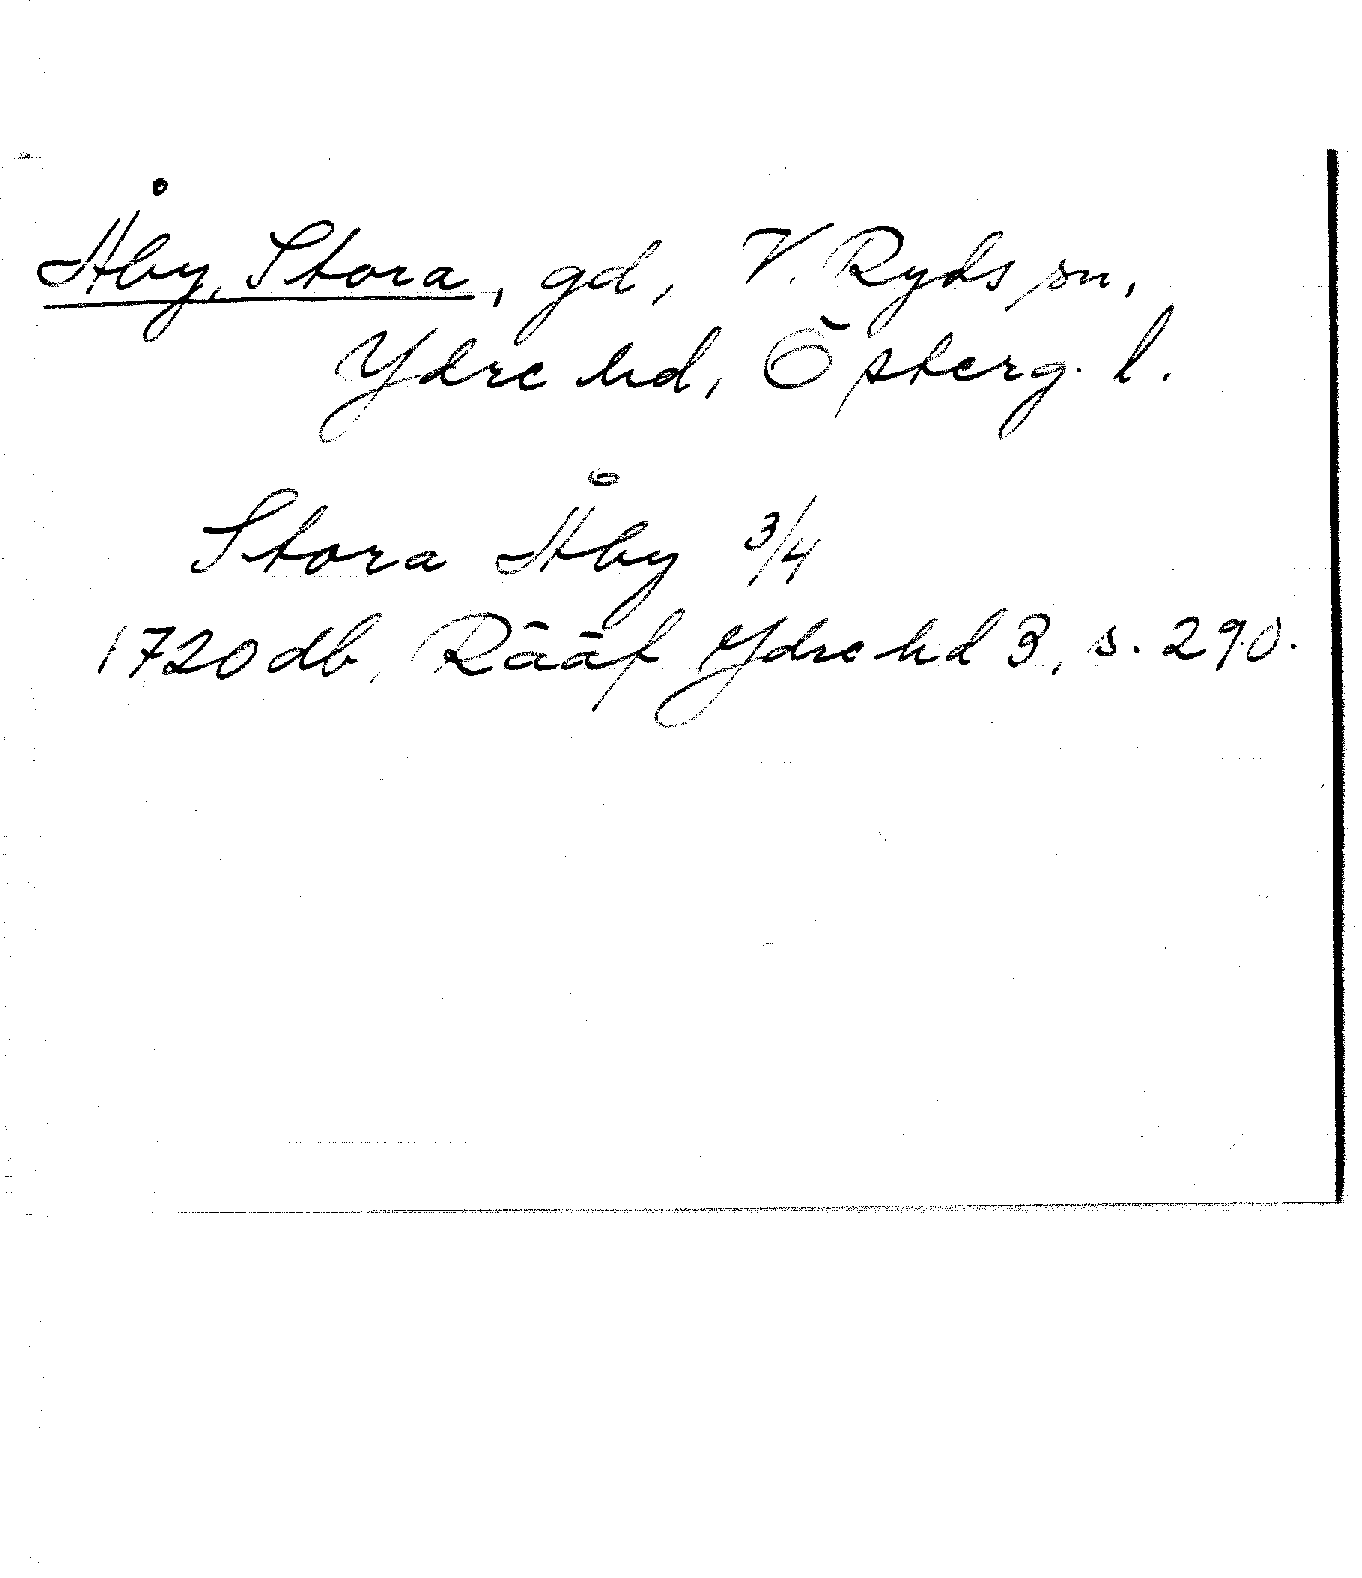 Åby, Stora, gd, V. Ryds sn,
Ydre hd, Österg. l.
Stora Åby 3/4
1720 db, Rääf Ydre hd 3, s. 290.